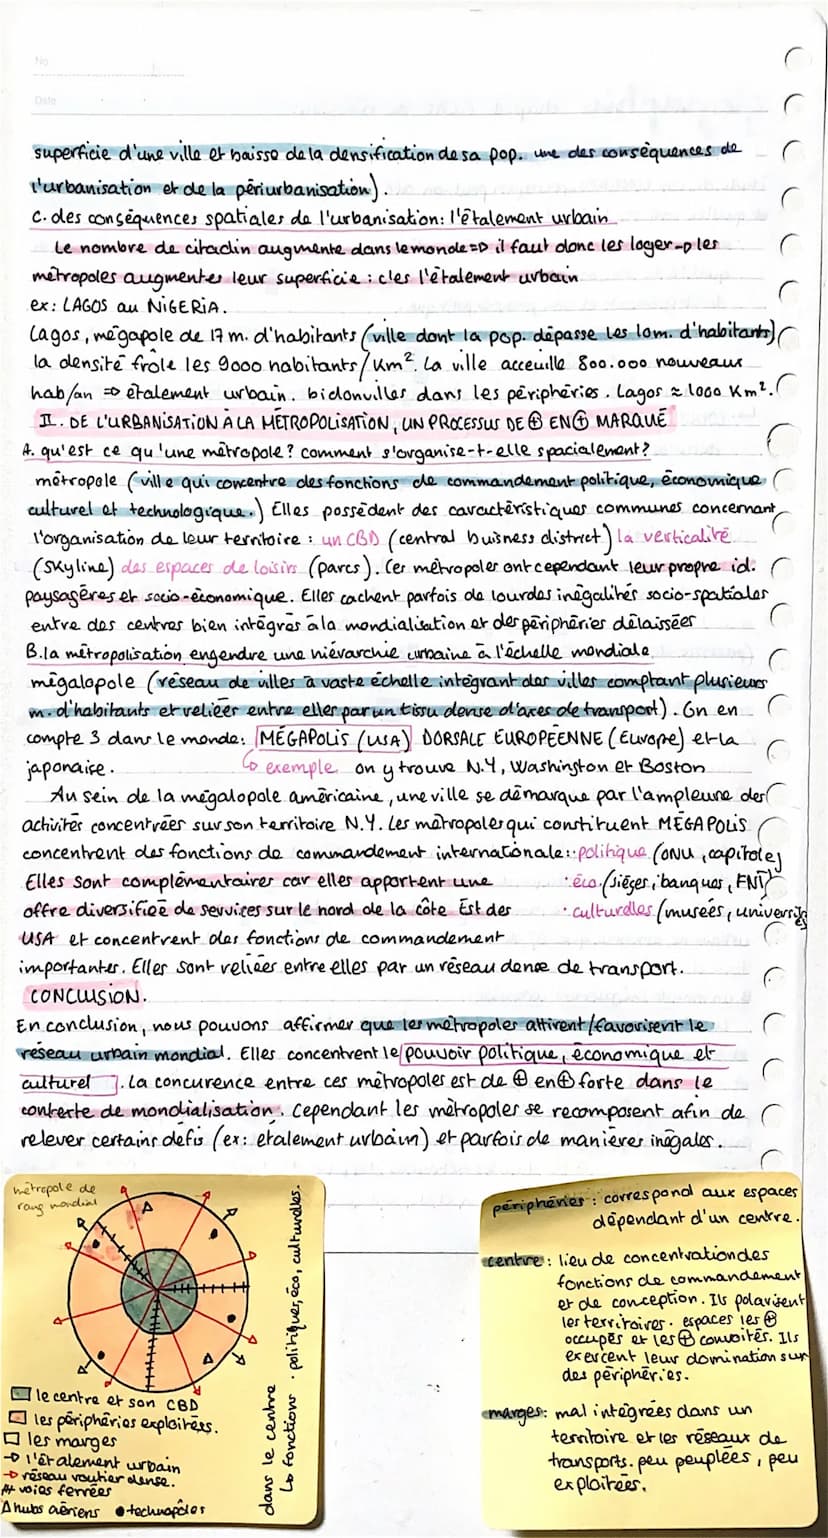 No
Date
superficie d'une ville et baisse de la densification de sa pop. une des conséquences de
l'urbanisation et de la périurbanisation).
C. des conséquences spatiales de l'urbanisation: l'étalement urbain
Le nombre de citadin augmente dans le monde => il faut donc les loger → les
métropoles augmentes leur superficie : c'es l'étalement urbain
ex: LAGOS au NIGERIA.
Lagos, mégapole de 17 m. d'habitants (ville dont la pop. dépasse les 10m. d'habitants)
la densité frôle les 9000 habitants/Km². La ville acceuille 800.000 nouveaux
hab/an => étalement urbain. bidonvilles dans les périphéries. Lagos ≈ 1000 Km².
II. DE L'URBANISATION À LA MÉTROPOLISATION, UN PROCESSUS DE ⊕ EN ⊕ MARQUÉ
A. qu'est ce qu'une métropole? comment s'organise-t-elle spacialement?
métropole (ville qui concentre des fonctions de commandement politique, économique
culturel et technologique.) Elles possèdent des caractéristiques communes concernant
l'organisation de leur territoire : un CBD (central buisness district) la verticalité
(skyline) des espaces de loisirs (parcs). Ces métropoles ont cependant leur propre id.
paysagères et socio-économique. Elles cachent parfois de lourdes inégalités socio-spatiales
entre des centres bien intégrés à la mondialisation et des périphéries délaissées
B. la métropolisation engendre une hiérarchie urbaine à l'échelle mondiale
mégalopole (réseau de villes à vaste échelle intégrant des villes comptant plusieurs
m. d'habitants et reliéer entre elles par un tissu dense d'axes de transport). On en
compte 3 dans le monde: MÉGAPOLIS (USA) DORSALE EUROPÉENNE (Europe) et la
japonaise. ↳ exemple on y trouve N.Y, Washington et Boston
Au sein de la mégalopole américaine, une ville se démarque par l'ampleure des
activités concentrées sur son territoire N.Y. Les métropoles qui constituent MÉGAPOLIS
concentrent des fonctions de commandement internationale: · politique (ONU, capitole)
Elles sont complémentaires car elles apportent une · éco. (sièges, banques, FNI)
offre diversifiée de services sur le nord de la côte Est des · culturelles (musées, universités
USA et concentrent des fonctions de commandement
importantes. Elles sont reliées entre elles par un réseau dense de transport.
CONCLUSION.
En conclusion, nous pouvons affirmer que les métropoles attirent/favorisent le
réseau urbain mondial. Elles concentrent le pouvoir politique, économique et
culturel. La concurence entre ces métropoles est de ⊕ en ⊕ forte dans le
contexte de mondialisation. Cependant les métropoles se recomposent afin de
relever certains défis (ex: étalement urbain) et parfois de manières inégales.
métropole de
rang mondial
le centre et son CBD
les périphéries exploitées.
les marges
→ l'étalement urbain
→ réseau routier dense.
voies ferrées
Δ hubs aériens ● technopôles
dans le centre
↳ fonctions · politiques, éco, culturelles.
périphéries : correspond aux espaces
dépendant d'un centre.
centre : lieu de concentration des
fonctions de commandement
et de conception. Ils polarisent
les territoires. espaces les ⊕
occupés et les ⊕ convoités. Ils
exercent leur domination sur
des périphéries.
marges: mal intégrées dans un
territoire et les réseaux de
transports. peu peuplées, peu
exploitées.